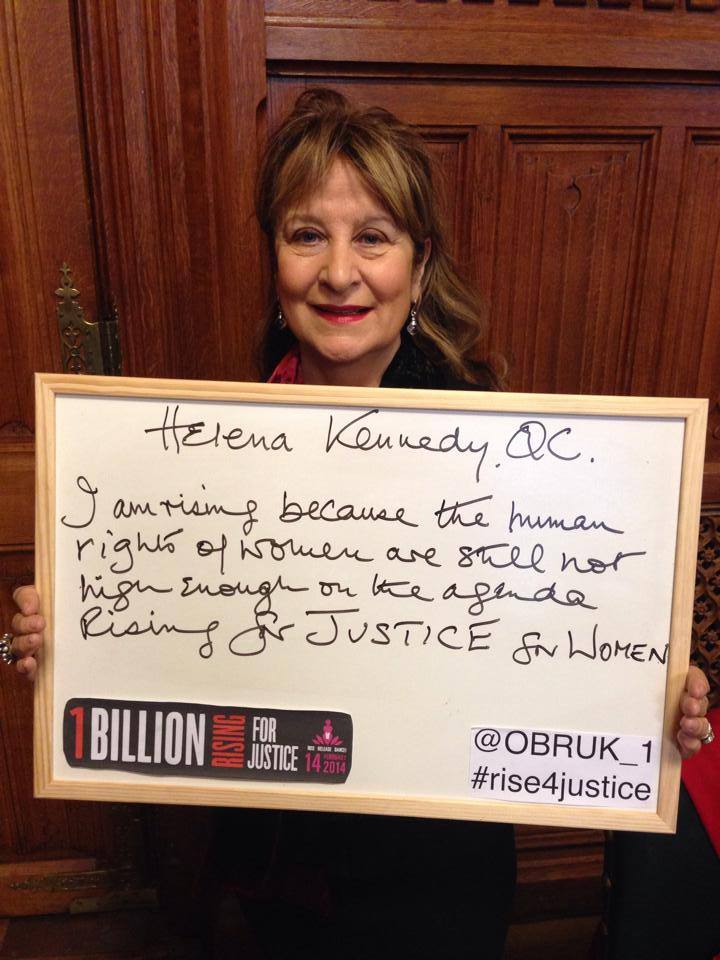 Helena Kennedy, QC.
I am rising because the human
rights of women are still not
high enough on the agenda
Rising for JUSTICE for WOMEN
1 BILLION RISING FOR JUSTICE
RISE RELEASE DANCE!
14 FEBRUARY 2014
@OBRUK_1
#rise4justice